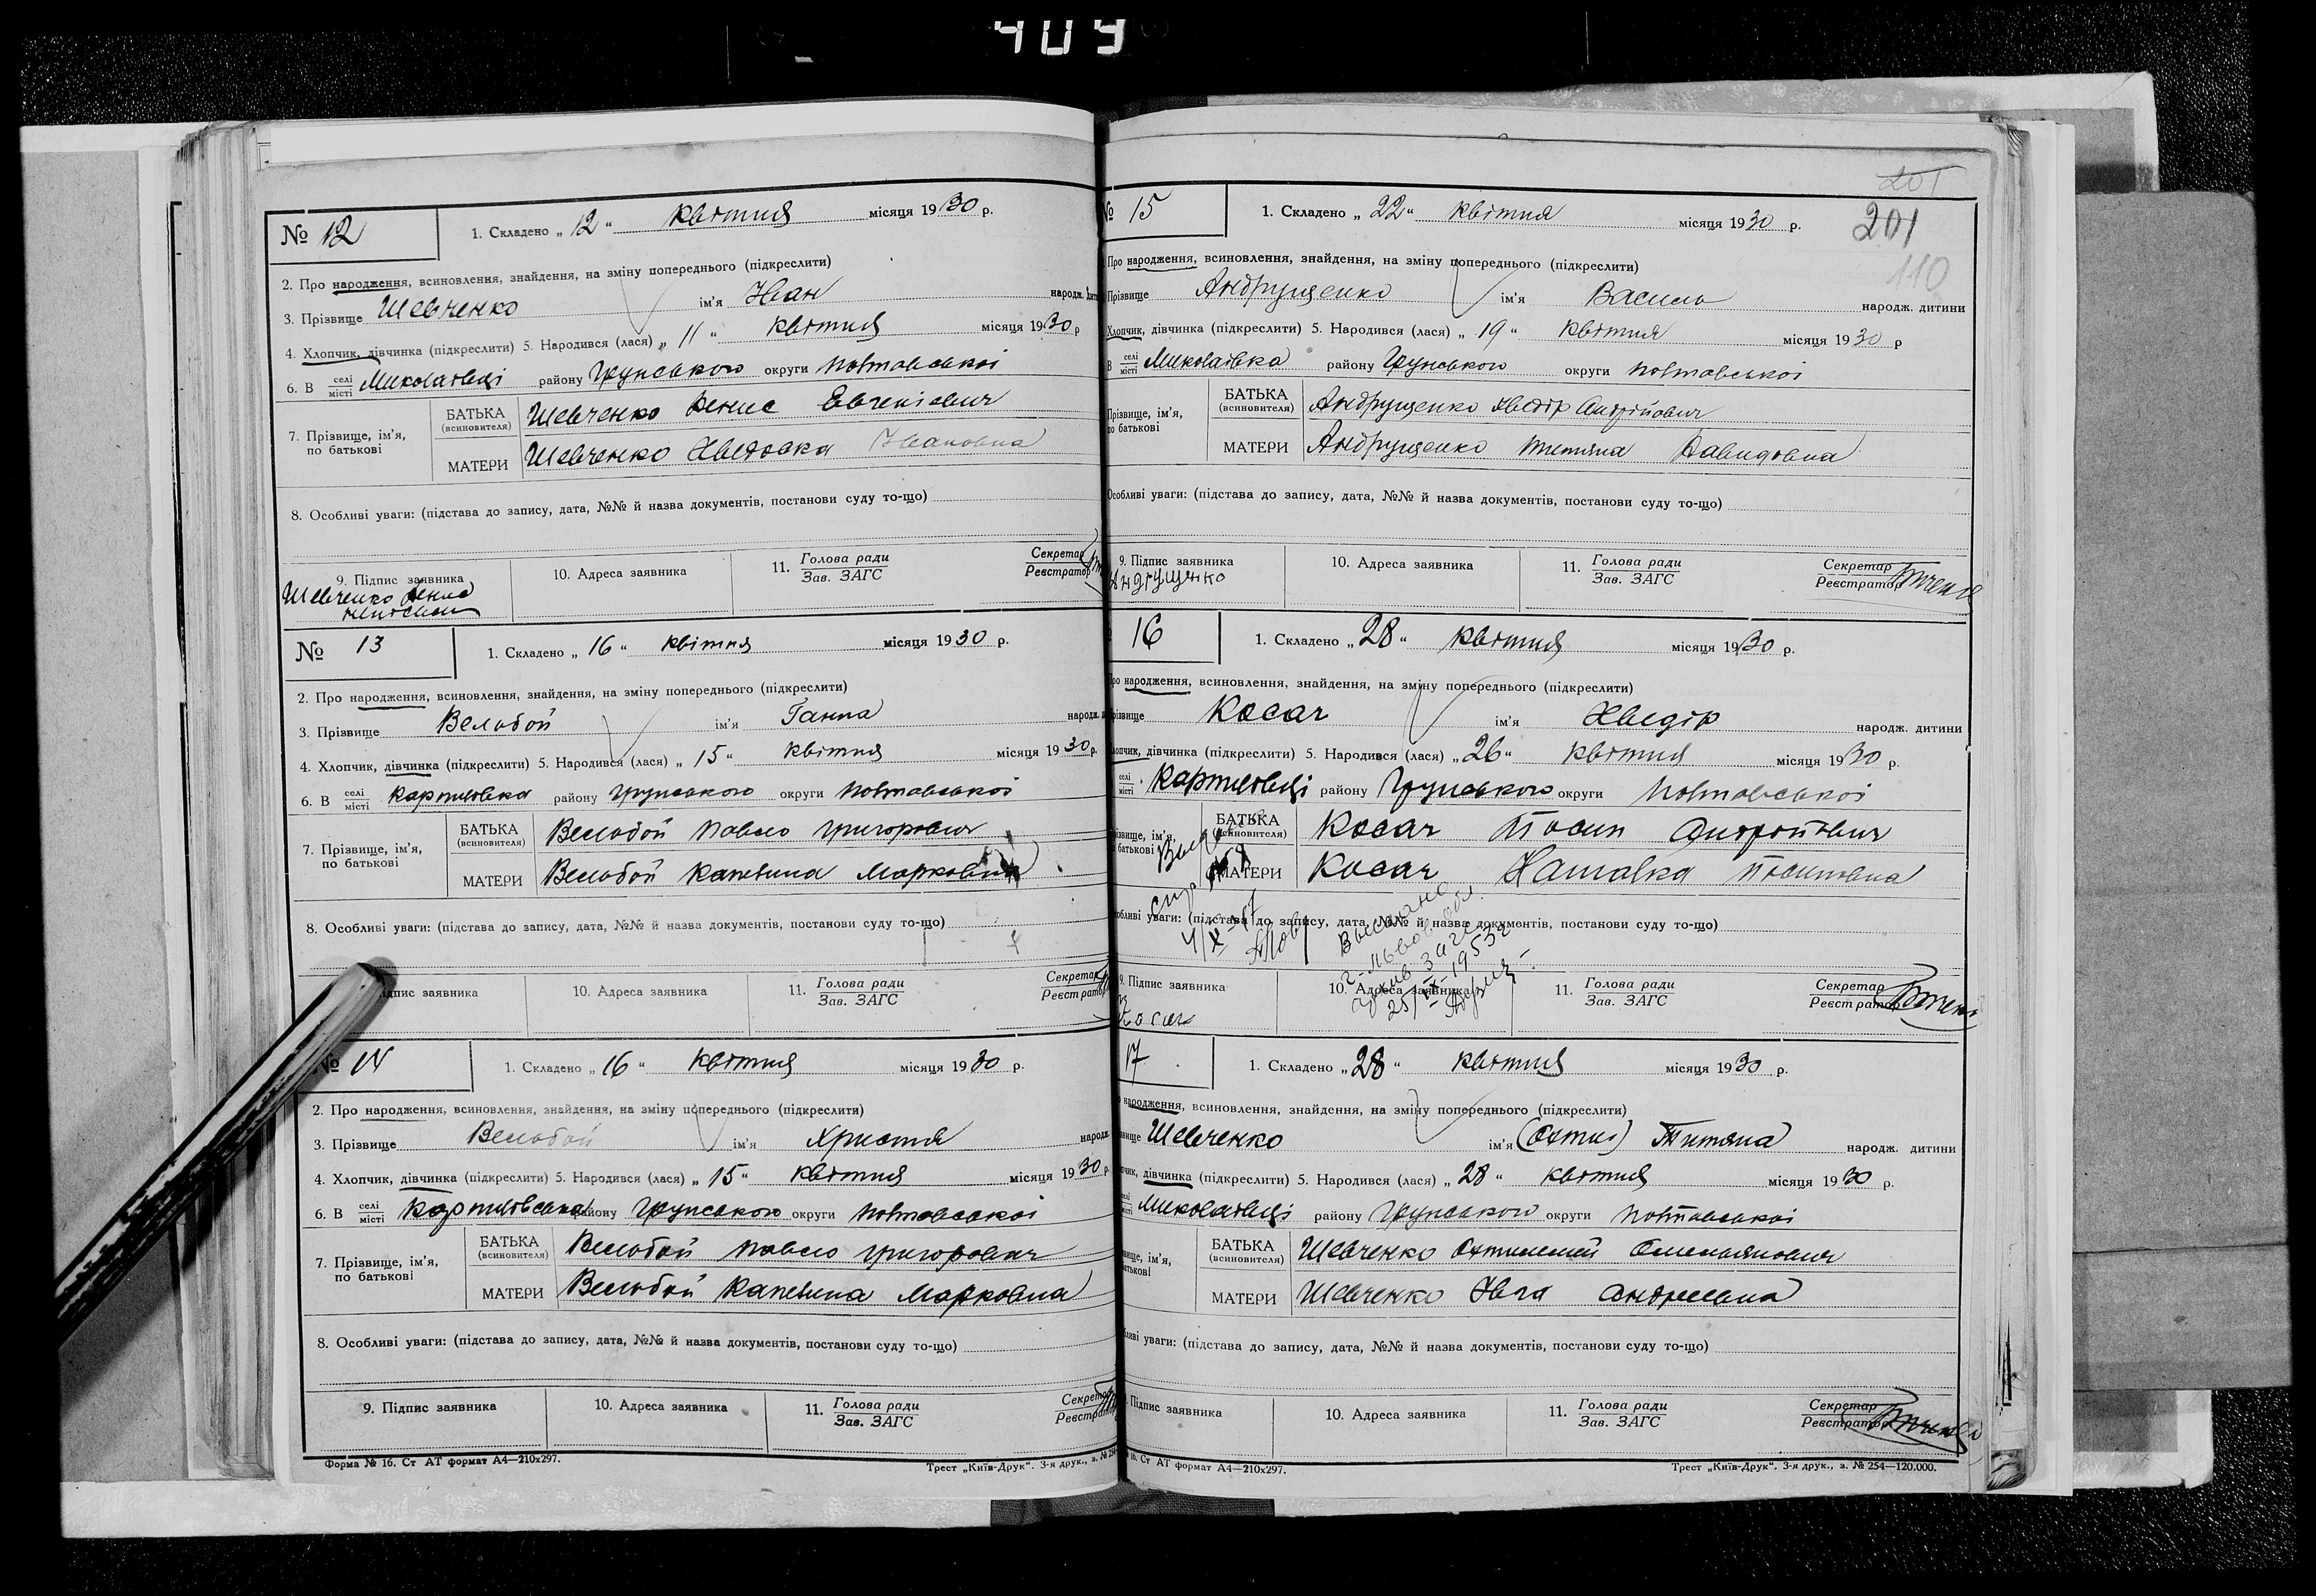 409
№ 12
1. Складено „ 12 “ квітня місяця 1930 р.
2. Про народження, всиновлення, знайдення, на зміну попереднього (підкреслити)
3. Прізвище Шевченко ім'я Іван народж.
4. Хлопчик, дівчинка (підкреслити) 5. Народився (лася) „ 11 “ квітня місяця 1930 р
6. В селі місті Миколаївці району Грунського округи Полтавської
7. Прізвище, ім'я, по батькові
БАТЬКА (всиновителя) Шевченко Денис
МАТЕРИ Шевченко Івановна
8. Особливі уваги: (підстава до запису, дата, №№ й назва документів, постанови суду то-що)
9. Підпис заявника 10. Адреса заявника 11. Голова ради Зав. ЗАГС Секретар Реєстратор
Шевченко Денис
№ 13
1. Складено „ 16 “ квітня місяця 1930 р.
2. Про народження, всиновлення, знайдення, на зміну попереднього (підкреслити)
3. Прізвище Белобой ім'я Ганна народж.
4. Хлопчик, дівчинка (підкреслити) 5. Народився (лася) „ 15 “ квітня місяця 1930 р.
6. В селі місті району Грунського округи Полтавської
7. Прізвище, ім'я, по батькові
БАТЬКА (всиновителя) Белобой Павло Григорович
МАТЕРИ Белобой Марковна
8. Особливі уваги: (підстава до запису, дата, №№ й назва документів, постанови суду то-що)
заявника 10. Адреса заявника 11. Голова ради Зав. ЗАГС Секретар Реєстратор
№ 14
1. Складено „ 16 “ квітня місяця 1930 р.
2. Про народження, всиновлення, знайдення, на зміну попереднього (підкреслити)
3. Прізвище Белобой ім'я Христя народж
4. Хлопчик, дівчинка (підкреслити) 5. Народився (лася) „ 15 “ квітня місяця 1930 р.
6. В селі місті району Грунського округи Полтавської
7. Прізвище, ім'я, по батькові
БАТЬКА (всиновителя) Белобой Павло Григорович
МАТЕРИ Белобой Марковна
8. Особливі уваги: (підстава до запису, дата, №№ й назва документів, постанови суду то-що)
9. Підпис заявника 10. Адреса заявника 11. Голова ради Зав. ЗАГС
Форма № 16. Ст АТ формат А4—210х297. Трест „Київ-Друк“. 3-я друк., з.
201
201
110
15
1. Складено „ 22 “ квітня місяця 1930 р.
Про народження, всиновлення, знайдення, на зміну попереднього (підкреслити)
Прізвище Андрущенко ім'я Василь народж. дитини
Хлопчик, дівчинка (підкреслити) 5. Народився (лася) „ 19 “ квітня місяця 1930 р
В селі місті Миколаївка району Грунського округи Полтавської
Прізвище, ім'я, по батькові
БАТЬКА (всиновителя) Андрущенко Хведір Андрійович
МАТЕРИ Андрущенко Тетяна Давидовна
Особливі уваги: (підстава до запису, дата, №№ й назва документів, постанови суду то-що)
9. Підпис заявника 10. Адреса заявника 11. Голова ради Зав. ЗАГС Секретар Реєстратор
16
1. Складено „ 28 “ квітня місяця 1930 р.
народження, всиновлення, знайдення, на зміну попереднього (підкреслити)
Косач ім'я Хведір народж. дитини
дівчинка (підкреслити) 5. Народився (лася) „ 26 “ квітня місяця 1930 р.
селі місті району Грунського округи Полтавської
БАТЬКА (всиновителя) Косач Андрійович
МАТЕРИ Косач Наталка
уваги: (підстава до запису, дата, №№ й назва документів, постанови суду то-що)
9. Підпис заявника 10. Адреса заявника 11. Голова ради Зав. ЗАГС Секретар Реєстратор
Косач
17
1. Складено „ 28 “ квітня місяця 1930 р.
народження, всиновлення, знайдення, на зміну попереднього (підкреслити)
Шевченко ім'я Титяна народж. дитини
дівчинка (підкреслити) 5. Народився (лася) „ 28 “ квітня місяця 1930 р.
Миколаївці району Грунського округи Полтавської
БАТЬКА (всиновителя) Шевченко Омельянович
МАТЕРИ Шевченко Андреевна
уваги: (підстава до запису, дата, №№ й назва документів, постанови суду то-що)
Підпис заявника 10. Адреса заявника 11. Голова ради Зав. ЗАГС Секретар Реєстратор
16. Ст АТ формат А4—210х297. Трест „Київ-Друк“. 3-я друк., з. № 254—120.000.